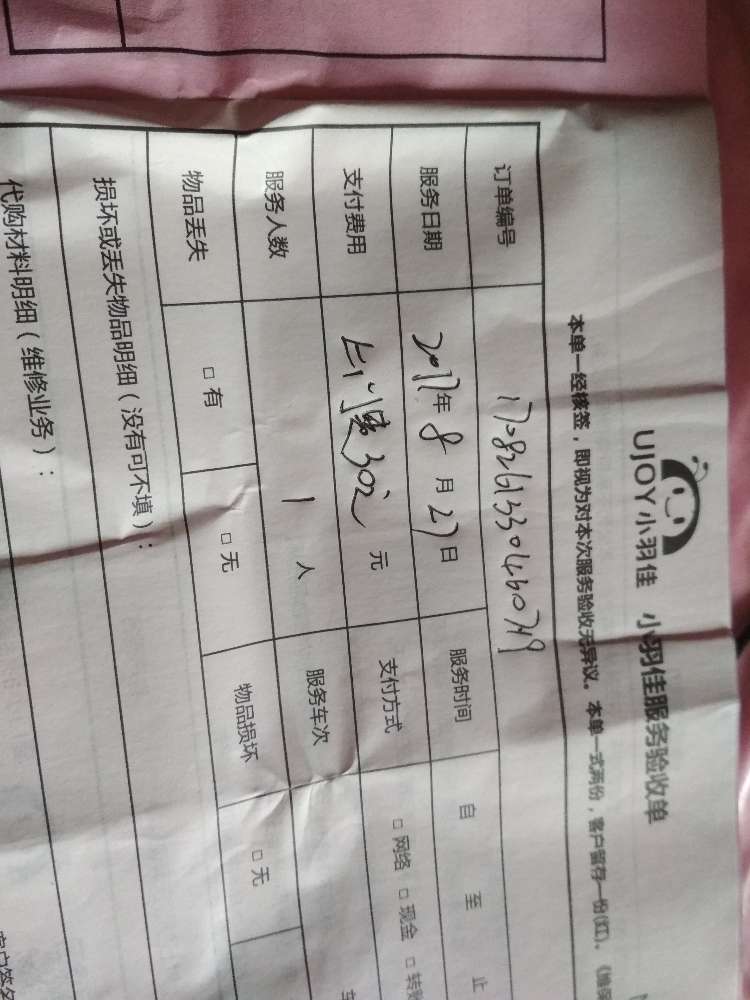 UJOY小羽佳 小羽佳服务验收单
本单一经核签，即视为对本次服务验收无异议。本单一式两份，客户留存一份(红)。
订单编号
服务日期 2017年8月27日 服务时间 自 至 止
支付费用 上门费30元 元 支付方式 □网络 □现金 □转账
服务人数 1 人 服务车次
物品丢失 □有 □无 物品损坏 □无
损坏或丢失物品明细（没有可不填）：
代购材料明细（维修业务）：
客户签名